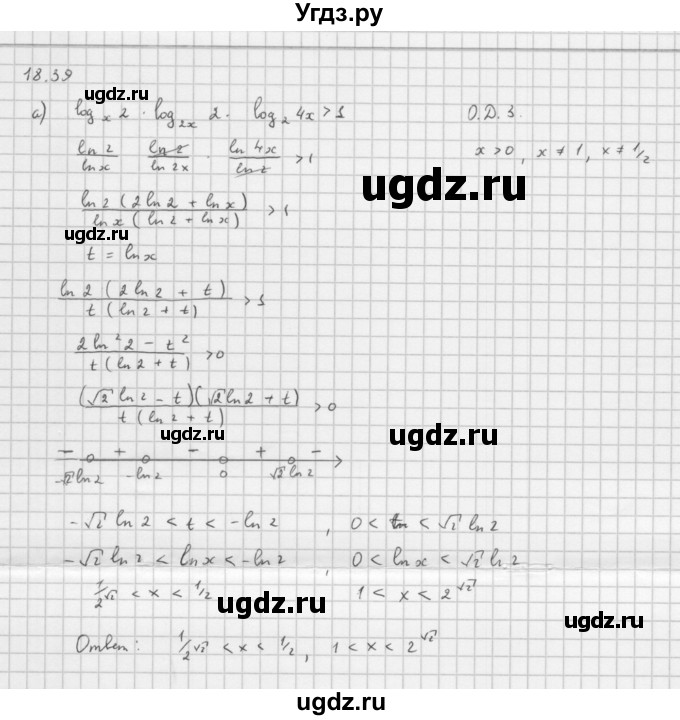 Угдз.ру
18.39
а) log_x 2 · log_{2x} 2 · log_2 4x > 1
О.Д.З.
x > 0, x ≠ 1, x ≠ 1/2
ln 2 / ln x · ln 2 / ln 2x · ln 4x / ln 2 > 1
ln 2 (2 ln 2 + ln x) / ln x (ln 2 + ln x) > 1
ugdz.ru
ugdz.ru
ugdz.ru
t = ln x
ln 2 (2 ln 2 + t) / t (ln 2 + t) > 1
2 ln² 2 − t² / t (ln 2 + t) > 0
(√2 ln 2 − t)(√2 ln 2 + t) / t (ln 2 + t) > 0
ugdz.ru
ugdz.ru
− + − + −
−√2 ln 2 −ln 2 0 √2 ln 2
−√2 ln 2 < t < −ln 2 , 0 < t < √2 ln 2
−√2 ln 2 < ln x < −ln 2 , 0 < ln x < √2 ln 2
1/2^√2 < x < 1/2 1 < x < 2^√2
ugdz.ru
ugdz.ru
Ответ: 1/2^√2 < x < 1/2 , 1 < x < 2^√2
ugdz.ru